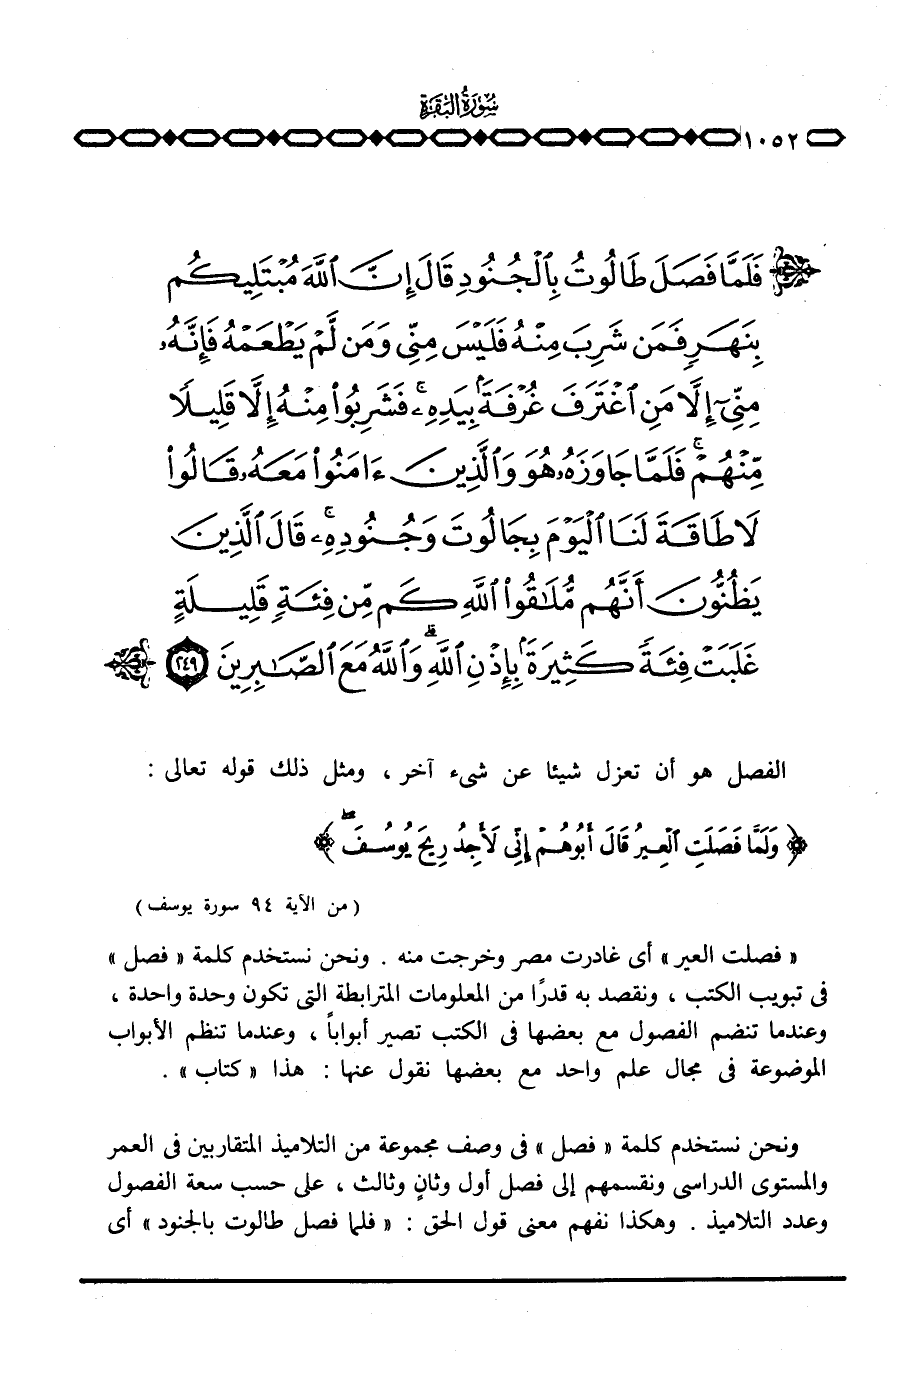 سُورَةُ البَقَرَةِ
١٠٥٢
فَلَمَّا فَصَلَ طَالُوتُ بِٱلْجُنُودِ قَالَ إِنَّ ٱللَّهَ مُبْتَلِيكُم
بِنَهَرٍ فَمَن شَرِبَ مِنْهُ فَلَيْسَ مِنِّى وَمَن لَّمْ يَطْعَمْهُ فَإِنَّهُۥ
مِنِّىٓ إِلَّا مَنِ ٱغْتَرَفَ غُرْفَةًۢ بِيَدِهِۦ ۚ فَشَرِبُوا۟ مِنْهُ إِلَّا قَلِيلًا
مِّنْهُمْ ۚ فَلَمَّا جَاوَزَهُۥ هُوَ وَٱلَّذِينَ ءَامَنُوا۟ مَعَهُۥ قَالُوا۟
لَا طَاقَةَ لَنَا ٱلْيَوْمَ بِجَالُوتَ وَجُنُودِهِۦ ۚ قَالَ ٱلَّذِينَ
يَظُنُّونَ أَنَّهُم مُّلَٰقُوا۟ ٱللَّهِ كَم مِّن فِئَةٍ قَلِيلَةٍ
غَلَبَتْ فِئَةً كَثِيرَةًۢ بِإِذْنِ ٱللَّهِ ۗ وَٱللَّهُ مَعَ ٱلصَّٰبِرِينَ ٢٤٩
الفصل هو أن تعزل شيئا عن شىء آخر ، ومثل ذلك قوله تعالى :
﴿ وَلَمَّا فَصَلَتِ ٱلْعِيرُ قَالَ أَبُوهُمْ إِنِّى لَأَجِدُ رِيحَ يُوسُفَ ۖ ﴾
( من الآية ٩٤ سورة يوسف )
« فصلت العير » أى غادرت مصر وخرجت منه . ونحن نستخدم كلمة « فصل »
فى تبويب الكتب ، ونقصد به قدرًا من المعلومات المترابطة التى تكون وحدة واحدة ،
وعندما تنضم الفصول مع بعضها فى الكتب تصير أبواباً ، وعندما تنظم الأبواب
الموضوعة فى مجال علم واحد مع بعضها نقول عنها : هذا « كتاب » .
ونحن نستخدم كلمة « فصل » فى وصف مجموعة من التلاميذ المتقاربين فى العمر
والمستوى الدراسى ونقسمهم إلى فصل أول وثانٍ وثالث ، على حسب سعة الفصول
وعدد التلاميذ . وهكذا نفهم معنى قول الحق : « فلما فصل طالوت بالجنود » أى